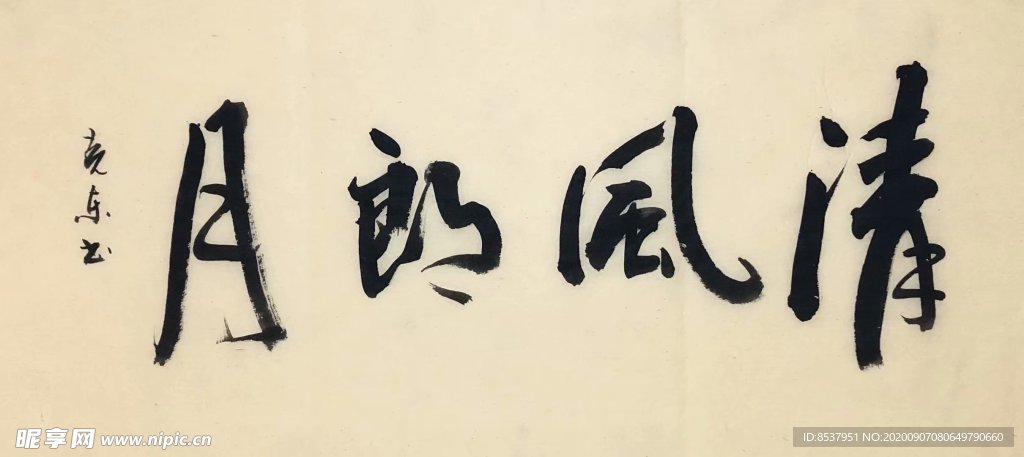 清風朗月
克东书
昵享网 www.nipic.cn
ID:8537951 NO:20200907080649790660